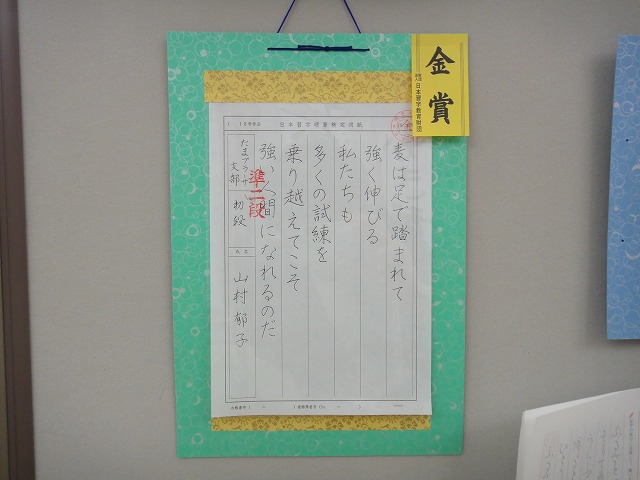 金賞
日本習字教育財団
日本習字硬筆検定用紙
麦は足で踏まれて
強く伸びる
私たちも
多くの試練を
乗り越えてこそ
強い人間になれるのだ
準二段
たまプラーザ
支部
初段
氏名
山村郁子